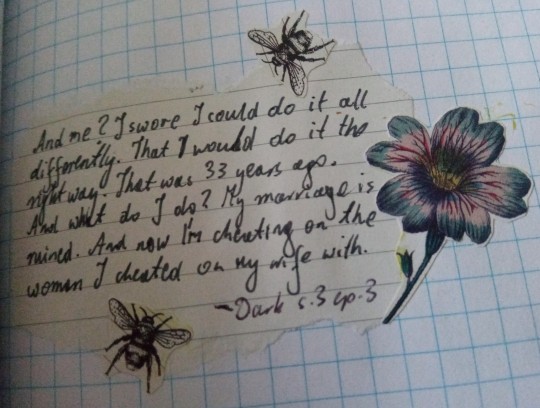 And me? I swore I could do it all
differently. That I would do it the
right way. That was 33 years ago.
And what do I do? My marriage is
ruined. And now I'm cheating on the
woman I cheated on my wife with.
-Dark s.3 ep.3